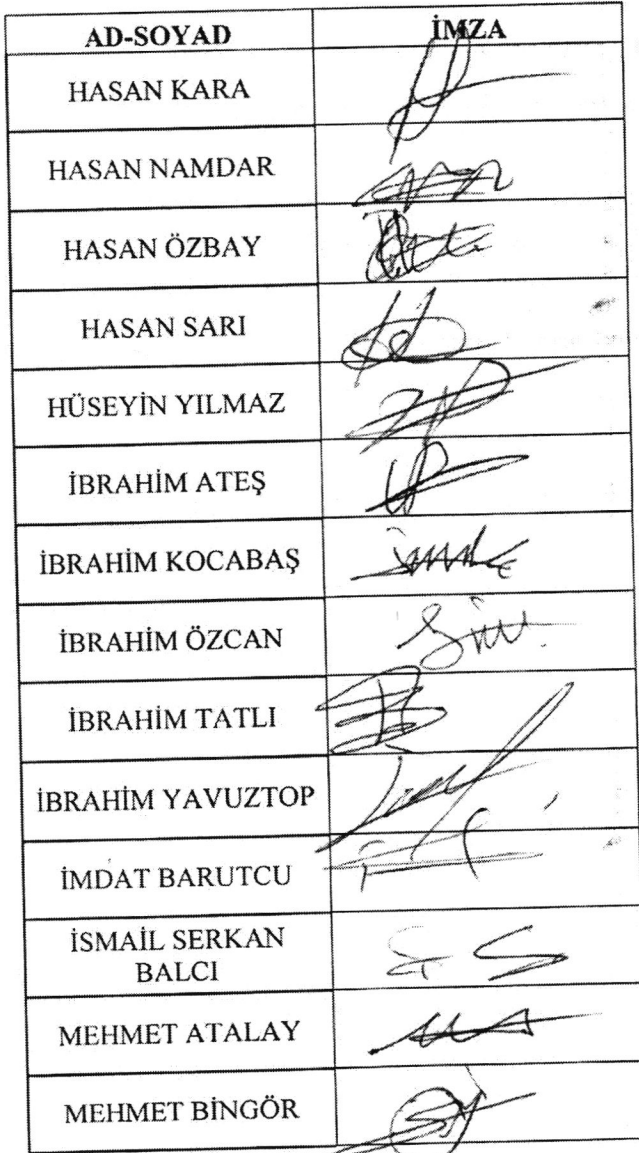 AD-SOYAD İMZA
HASAN KARA
HASAN NAMDAR
HASAN ÖZBAY
HASAN SARI
HÜSEYİN YILMAZ
İBRAHİM ATEŞ
İBRAHİM KOCABAŞ
İBRAHİM ÖZCAN
İBRAHİM TATLI
İBRAHİM YAVUZTOP
İMDAT BARUTCU
İSMAİL SERKAN
BALCI
MEHMET ATALAY
MEHMET BİNGÖR